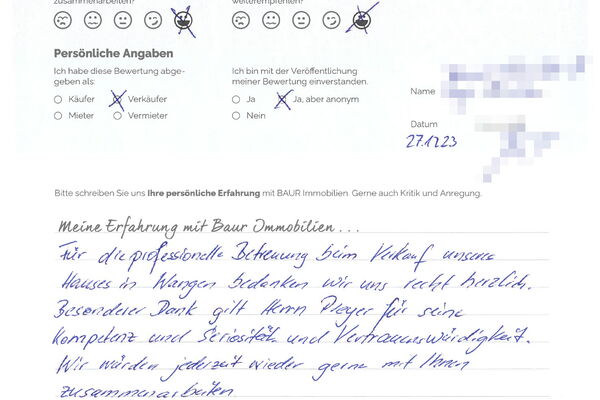 zusammenarbeiten?
weiterempfehlen?
Persönliche Angaben
Ich habe diese Bewertung abge-
geben als:
Käufer
Verkäufer
Mieter
Vermieter
Ich bin mit der Veröffentlichung
meiner Bewertung einverstanden.
Ja
Ja, aber anonym
Nein
Name
Datum
Bitte schreiben Sie uns Ihre persönliche Erfahrung mit BAUR Immobilien. Gerne auch Kritik und Anregung.
Meine Erfahrung mit Baur Immobilien...
Für die professionelle Betreuung beim Verkauf unseres
Hauses in Wangen bedanken wir uns recht herzlich.
Besonderer Dank gilt Herrn für seine
Kompetenz und Seriosität und Vertrauenswürdigkeit.
Wir würden jederzeit wieder gerne mit Ihnen
zusammenarbeiten